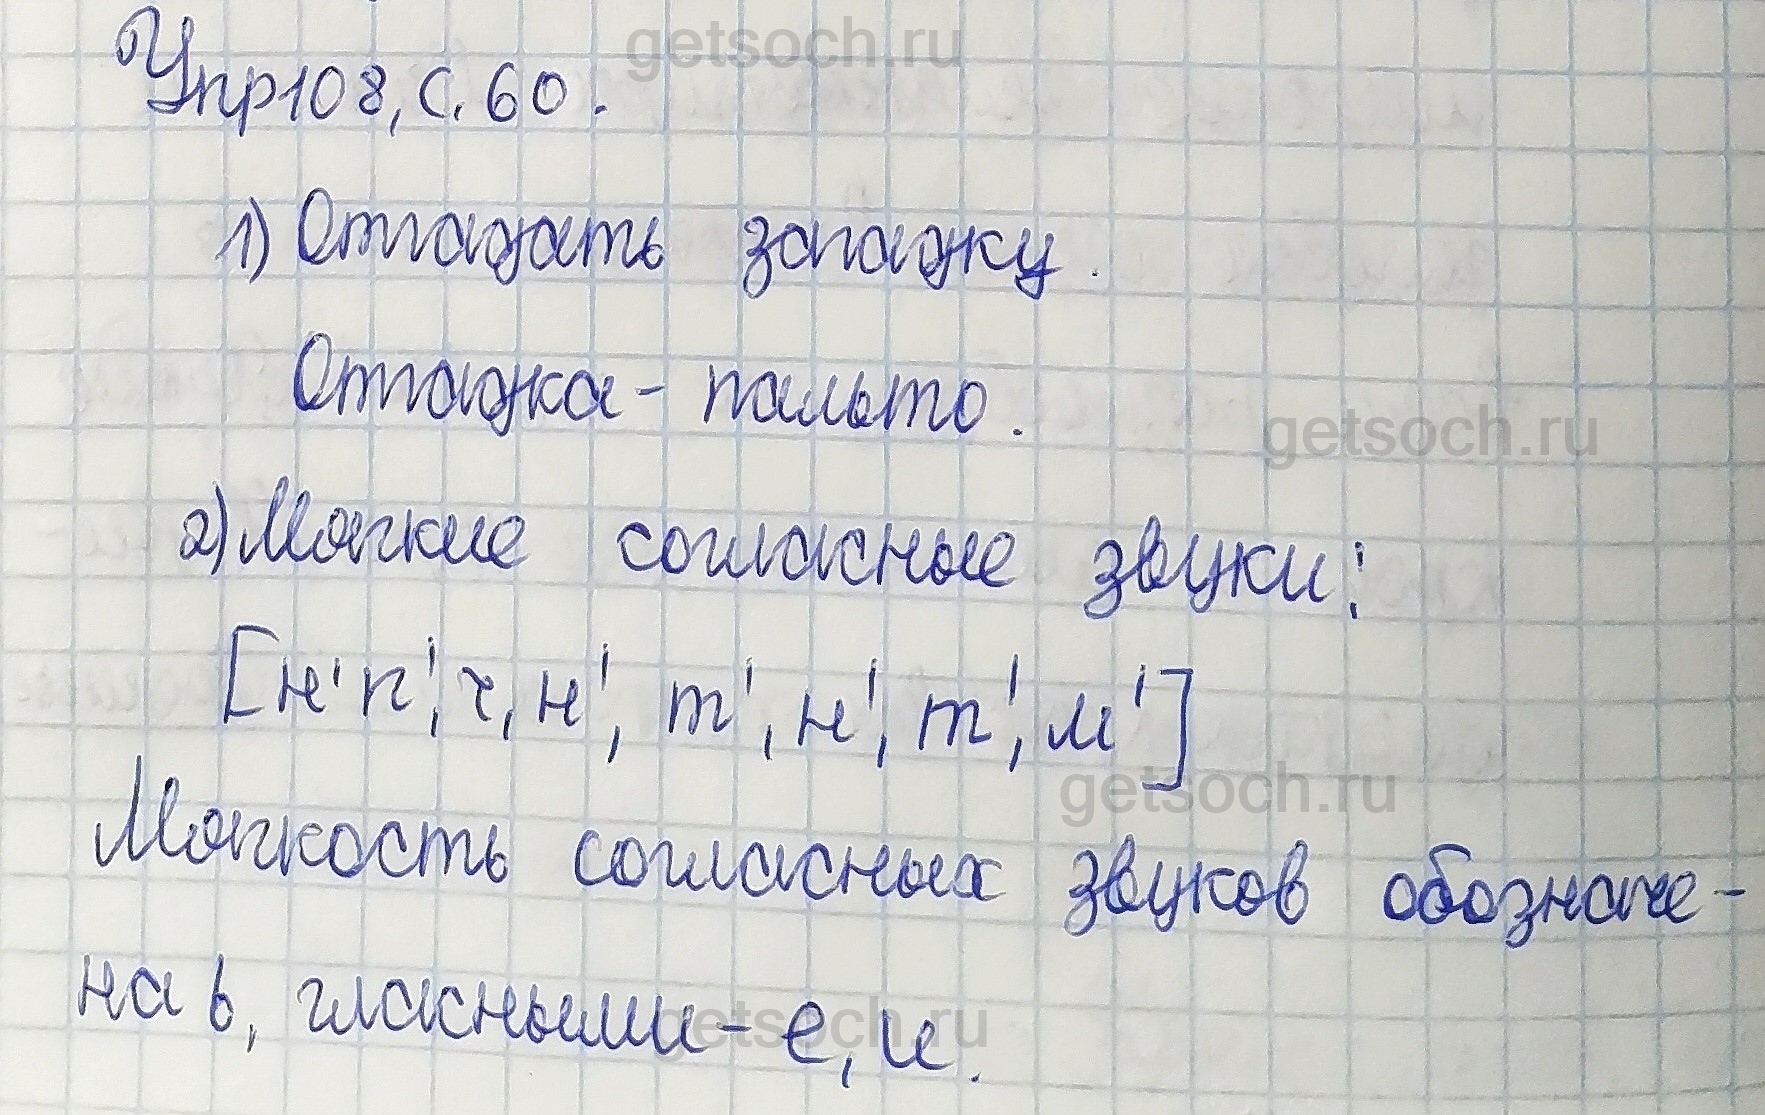 getsoch.ru
Упр108, с. 60.
1) Отгадать загадку.
Отгадка - пальто.
getsoch.ru
2) Мягкие согласные звуки:
[н' п', ч, н', т', н', т', м']
getsoch.ru
Мягкость согласных звуков обозначе-
на ь, гласными - е, и.
getsoch.ru